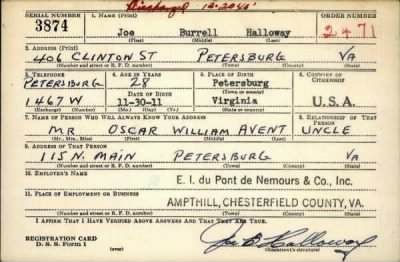 Discharged 12-2045'
SERIAL NUMBER 1. NAME (Print) ORDER NUMBER
3874 Joe Burrell Halloway 2471
(First) (Middle) (Last)
2. ADDRESS (Print)
406 CLINTON ST PETERSBURG VA
(Number and street or R. F. D. number) (Town) (County) (State)
3. TELEPHONE 4. AGE IN YEARS 5. PLACE OF BIRTH 6. COUNTRY OF CITIZENSHIP
PETERSBURG 28 Petersburg
DATE OF BIRTH (Town or county)
1467W 11-30-11 Virginia U.S.A.
(Exchange) (Number) (Mo.) (Day) (Yr.) (State or country)
7. NAME OF PERSON WHO WILL ALWAYS KNOW YOUR ADDRESS 8. RELATIONSHIP OF THAT PERSON
MR OSCAR WILLIAM AVENT UNCLE
(Mr., Mrs., Miss) (First) (Middle) (Last)
9. ADDRESS OF THAT PERSON
115 N. MAIN PETERSBURG VA
(Number and street or R. F. D. number) (Town) (County) (State)
10. EMPLOYER'S NAME
E. I. du Pont de Nemours & Co., Inc.
11. PLACE OF EMPLOYMENT OR BUSINESS
AMPTHILL, CHESTERFIELD COUNTY, VA.
(Number and street or R. F. D. number) (Town) (County) (State)
I AFFIRM THAT I HAVE VERIFIED ABOVE ANSWERS AND THAT THEY ARE TRUE.
REGISTRATION CARD
D. S. S. Form 1
Joe B Halloway
(Registrant's signature)